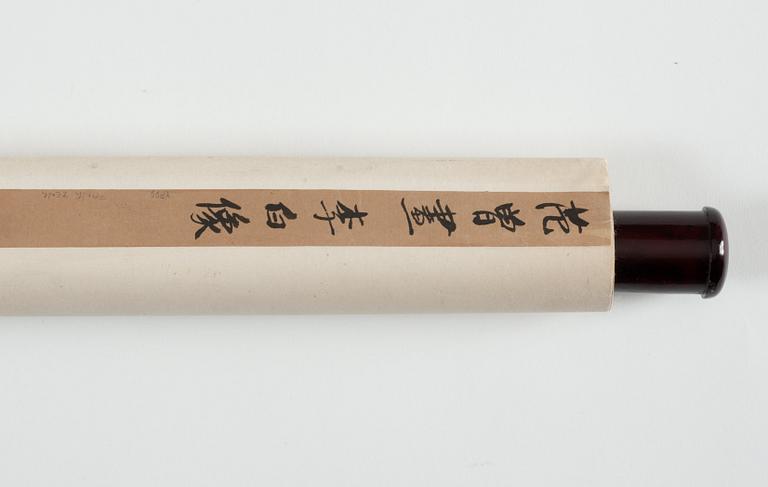 范曾畫李白像